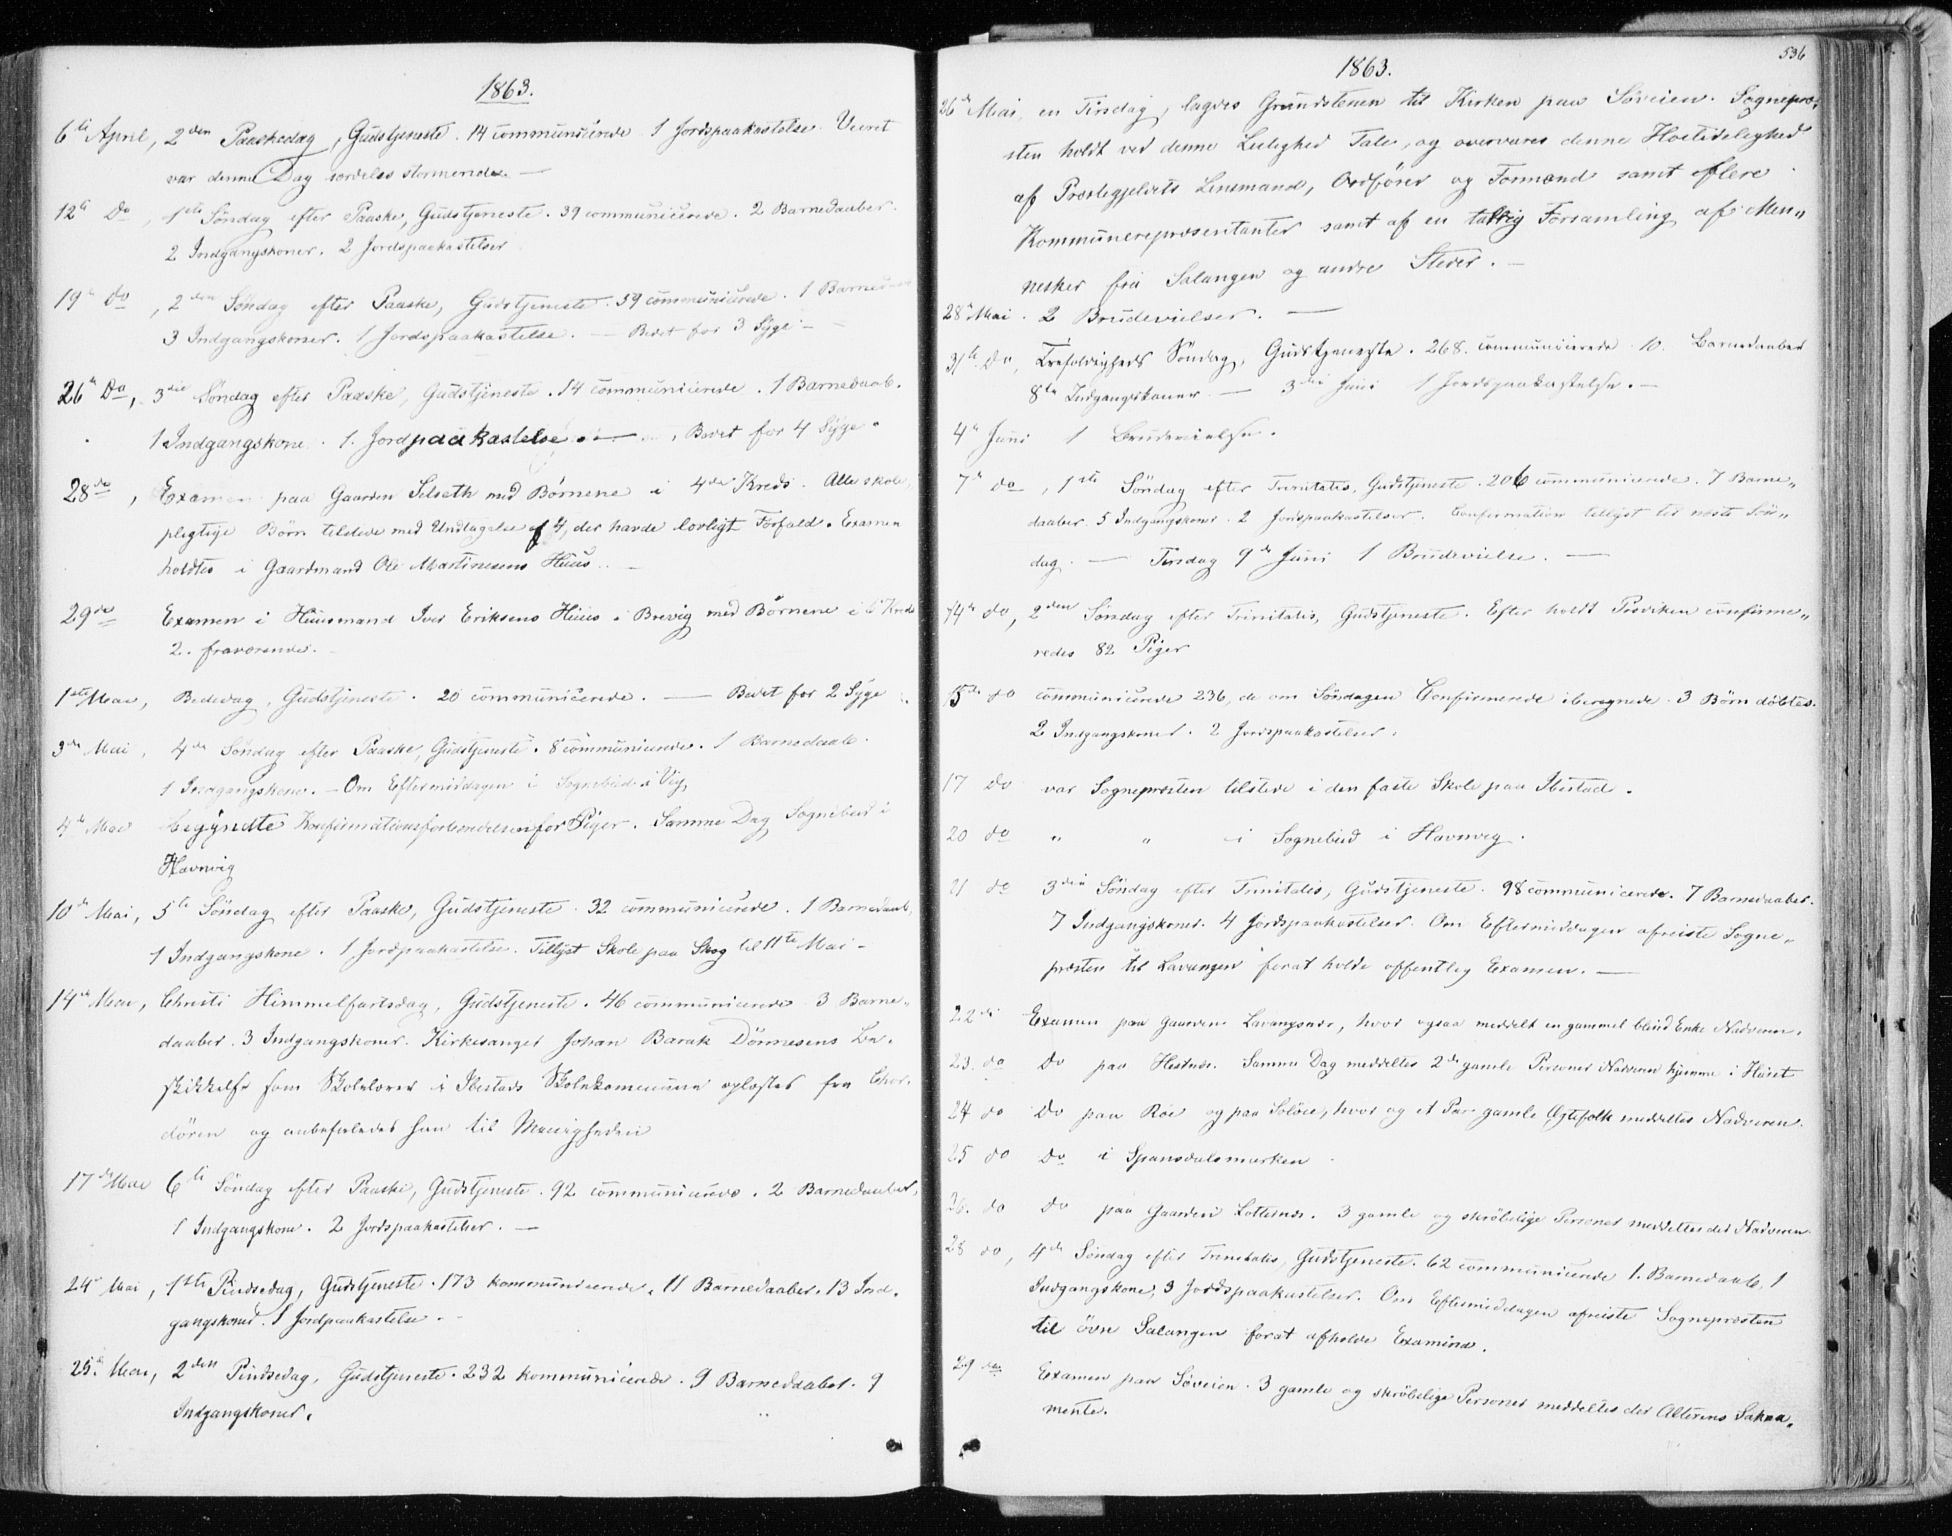 1863.
6te April, 2den Paaskedag, Gudstjeneste. 14 communicerede 1 Jordspaakastelse. Veiret
var denne Dag særdeles stormende. —
12te Do, 1ste Søndag efter Paaske, Gudstjeneste. 39 communicerede. 2 Barnedaaber.
2 Indgangskoner. 2 Jordspaakastelser
19de Do, 2den Søndag efter Paaske, Gudstjeneste. 59 communicerede. 1 Barnedaab
3 Indgangskoner. 1 Jordspaakastelse. — Bedet for 3 Syge —
26de Do, 3die Søndag efter Paaske, Gudstjeneste. 14 communicerede. 1 Barnedaab.
1 Indgangskone. 1. Jordpaakastelse. — Bedet for 4 Syge.
28de, Examen paa Gaarden Selseth med Børnene i 4de Kreds. Alle skole„
pligtige Børn tilstede med Undtagelse af 4, der havde lovligt Forfald. Examen
holdtes i Gaardmand Ole Martinesens Huus. —
29de Examen i Huusmand Iver Eriksens Huus i Brevig med Børnene i 6 Kreds
2. fraværende. —
1ste Mai, Bededag, Gudstjeneste. 20 communicerede. — Bedet for 2 Syge
3die Mai, 4de Søndag efter Paaske, Gudstjeneste. 8 communicerede. 1 Barnedaab.
1 Indgangskone. — Om Eftermiddagen i Sognebud i Vig.
4de Mai begyndte Konfirmationsforberedelsen for Piger. Samme Dag Sognebud i
Havnvig
10de Mai, 5te Søndag efter Paaske, Gudstjeneste. 32 communicerede. 1 Barnedaab,
1 Indgangskone. 1 Jordspaakastelse. Tillyst Skole paa Skog til 11te Mai —
14de Mai, Christi Himmelfartsdag, Gudstjeneste. 46 communicerede 3 Barne„
daaber. 3 Indgangskoner. Kirkesanger Johan Barak Dønnesens Be„
skikkelse som Skolelærer i Ibestads Skolekommune oplæstes fra Chor„
døren og anbefaledes han til Menigheden
17de Mai 6te Søndag efter Paaske, Gudstjeneste. 92 communicerede. 2 Barnedaaber,
1 Indgangskone. 2 Jordspaakastelser. —
24de Mai, 1ste Pindsedag, Gudstjeneste. 173 kommunicerede. 11 Barnedaaber. 13 Ind„
gangskoner. 1 Jordpaakastelse. —
25de Mai, 2den Pindsedag, Gudstjeneste. 232 kommunicerede. 9 Barnedaaber. 9
Indgangskoner.
536
1863.
26de Mai, en Tirsdag, lagdes Grundstenen til Kirken paa Søveien. Sognepræ„
sten holdt ved denne Leilighed Tale, og overvares denne Høitidelighed
af Præstegjeldets Lensmand, Ordfører og Formænd samt flere
Kommunerepræsentanter samt af en talrig Forsamling af Men„
nesker fra Salangen og andre Steder. —
28de Mai. 2 Brudevielser. —
31te Do, Trefoldigheds Søndag, Gudstjeneste. 268. communicerede 10. Barnedaaber
8te Indgangskoner — 3die Juni 1 Jordspaakastelse. —
4de Juni 1 Brudevielse.
7de do, 1ste Søndag efter Trinitatis, Gudstjeneste. 206 communicerede. 7 Barne„
daaber. 5 Indgangskoner. 2 Jordspaakastelser. Confirmation tillyst til næste Søn„
dag. — Tirsdag 9de Juni 1 Brudevielse. —
14de do, 2den Søndag efter Trinitatis, Gudstjeneste. Efter holdt Prædiken confirme„
redes 82 Piger
15de do communicerede 236, de om Søndagen Confirmerede iberegnede. 3 Børn døbtes.
2 Indgangskoner. 2 Jordspaakastelser.
17 do var Sognepræsten tilstede i den faste Skole paa Ibestad.
20 do „ „ i Sognebud i Havnvig.
21 do 3die Søndag efter Trinitatis, Gudstjeneste. 98 communicerede. 7 Barnedaaber.
7 Indgangskoner. 4 Jordspaakastelser. Om Eftermiddagen afreiste Sogne„
præsten til Lavangen forat holde offentlig Examen. —
22de Examen paa Gaarden Lavangsnes, hvor ogsaa meddelt en gammel blind Enke Nadveren.
23. do Do paa Hestnes. Samme Dag meddeltes 2de gamle Personer Nadveren hjemme i Huset
24 do Do paa Røe og paa Soløe, hvor og et Par gamle Ægtefolk meddeltes Nadveren.
25 do Do i Spansdalsmarken
26. do Do paa Gaarden Lottenes. 3 gamle og skrøbelige Personer meddeltes der Nadveren
28 do, 4de Søndag efter Trinitatis, Gudstjeneste. 62 communicerede 1. Barnedaab, 1
Indgangskone, 3 Jordspaakastelser. Om Eftermiddagen afreiste Sognepræsten
til øvre Salangen forat afholde Examina.
29de Examen paa Søveien. 3 gamle og skrøbelige Personer meddeltes der Alterens Sakra„
mente.